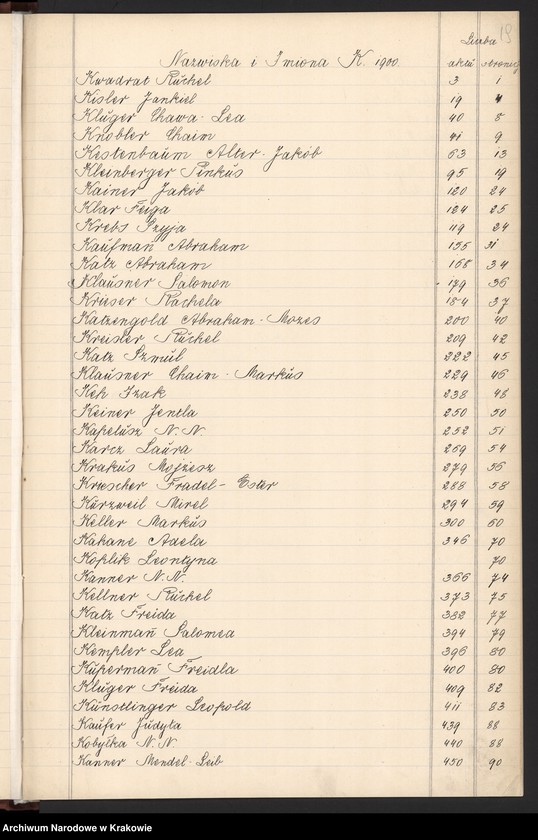 19
Liczba
Nazwiska i Imiona K. 1900. aktu stronicy
Kwadrat Ruchel 3 1
Kisler Jankiel 19 4
Kluger Chawa-Lea 40 8
Knobler Chaim 41 9
Kestenbaum Alter-Jakób 63 13
Kleinberger Pinkus 95 19
Kainer Jakób 120 24
Klar Feiga 124 25
Krebs Szyja 119 24
Kaufman Abraham 155 31
Katz Abraham 168 34
Klausner Salomon 179 36
Krieser Rachela 184 37
Katzengold Abraham-Mozes 200 40
Kreisler Ruchel 209 42
Katz Szmul 222 45
Klausner Chaim-Markus 229 46
Keh Izak 238 48
Keiner Jentla 250 50
Kapelusz N. N. 252 51
Karcz Laura 269 54
Krakus Mojżesz 279 56
Kriescher Fradel-Ester 288 58
Kurzweil Mirel 294 59
Keller Markus 300 60
Kahane Adela 346 70
Koplik Leontyna 70
Kanner N. N. 366 74
Kellner Ruchel 373 75
Katz Freida 382 77
Kleinman Salomea 394 79
Kempler Lea 396 80
Kuperman Freidla 400 80
Kluger Freida 409 82
Künstlinger Leopold 411 83
Kaufer Judyta 439 88
Kobyłka N. N. 440 88
Kanner Mendel-Leib 450 90
Archiwum Narodowe w Krakowie